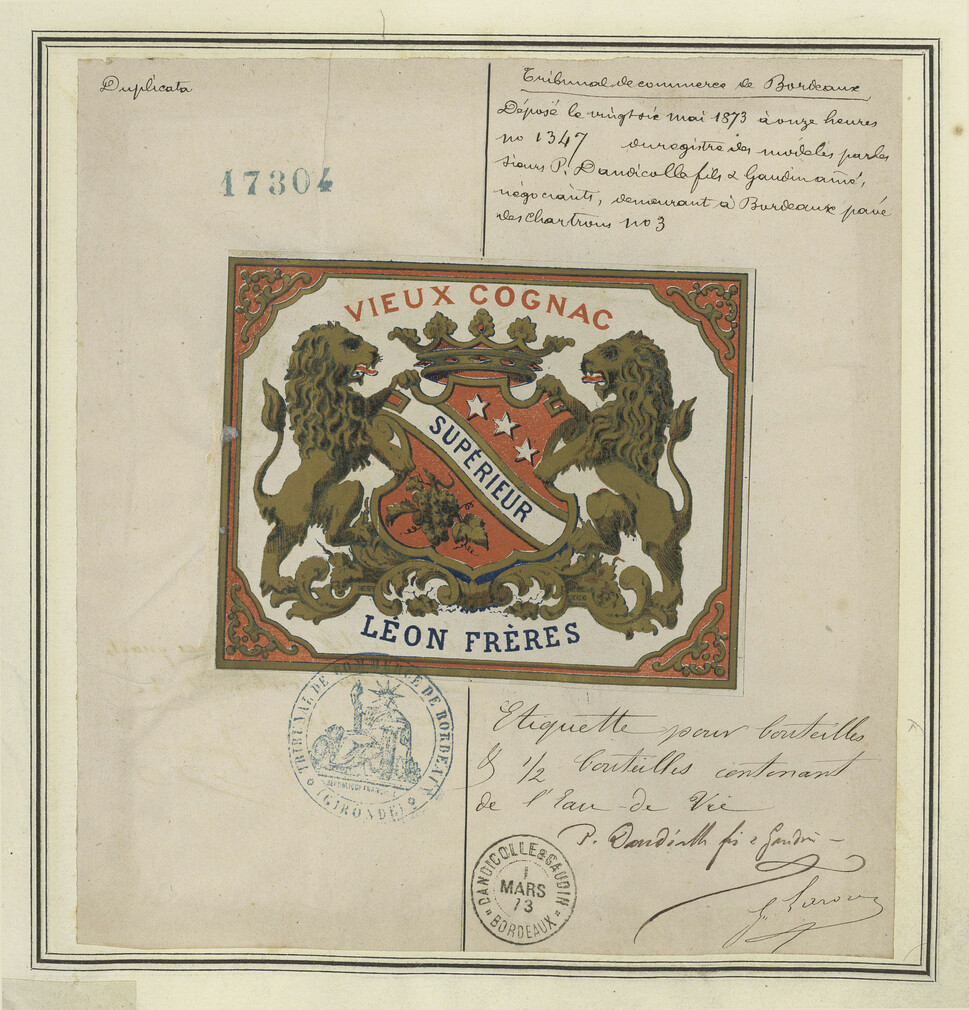 Duplicata
17304
Tribunal de commerce de Bordeaux
Déposé le vingt six mai 1873 à onze heures
no 1347 du registre des modèles par les
sieurs P. Dandicolle fils & Gaudin ainé,
négociants, demeurant à Bordeaux pavé
des Chartrons no 3
VIEUX COGNAC
SUPÉRIEUR
LÉON FRÈRES
TRIBUNAL DE COMMERCE DE BORDEAUX
RÉPUBLIQUE FRANÇAISE
(GIRONDE)
Etiquette pour bouteilles
& 1/2 bouteilles contenant
de l'Eau-de Vie
P. Dandicolle fils & Gaudin
DANDICOLLE & GAUDIN
1
MARS
73
BORDEAUX